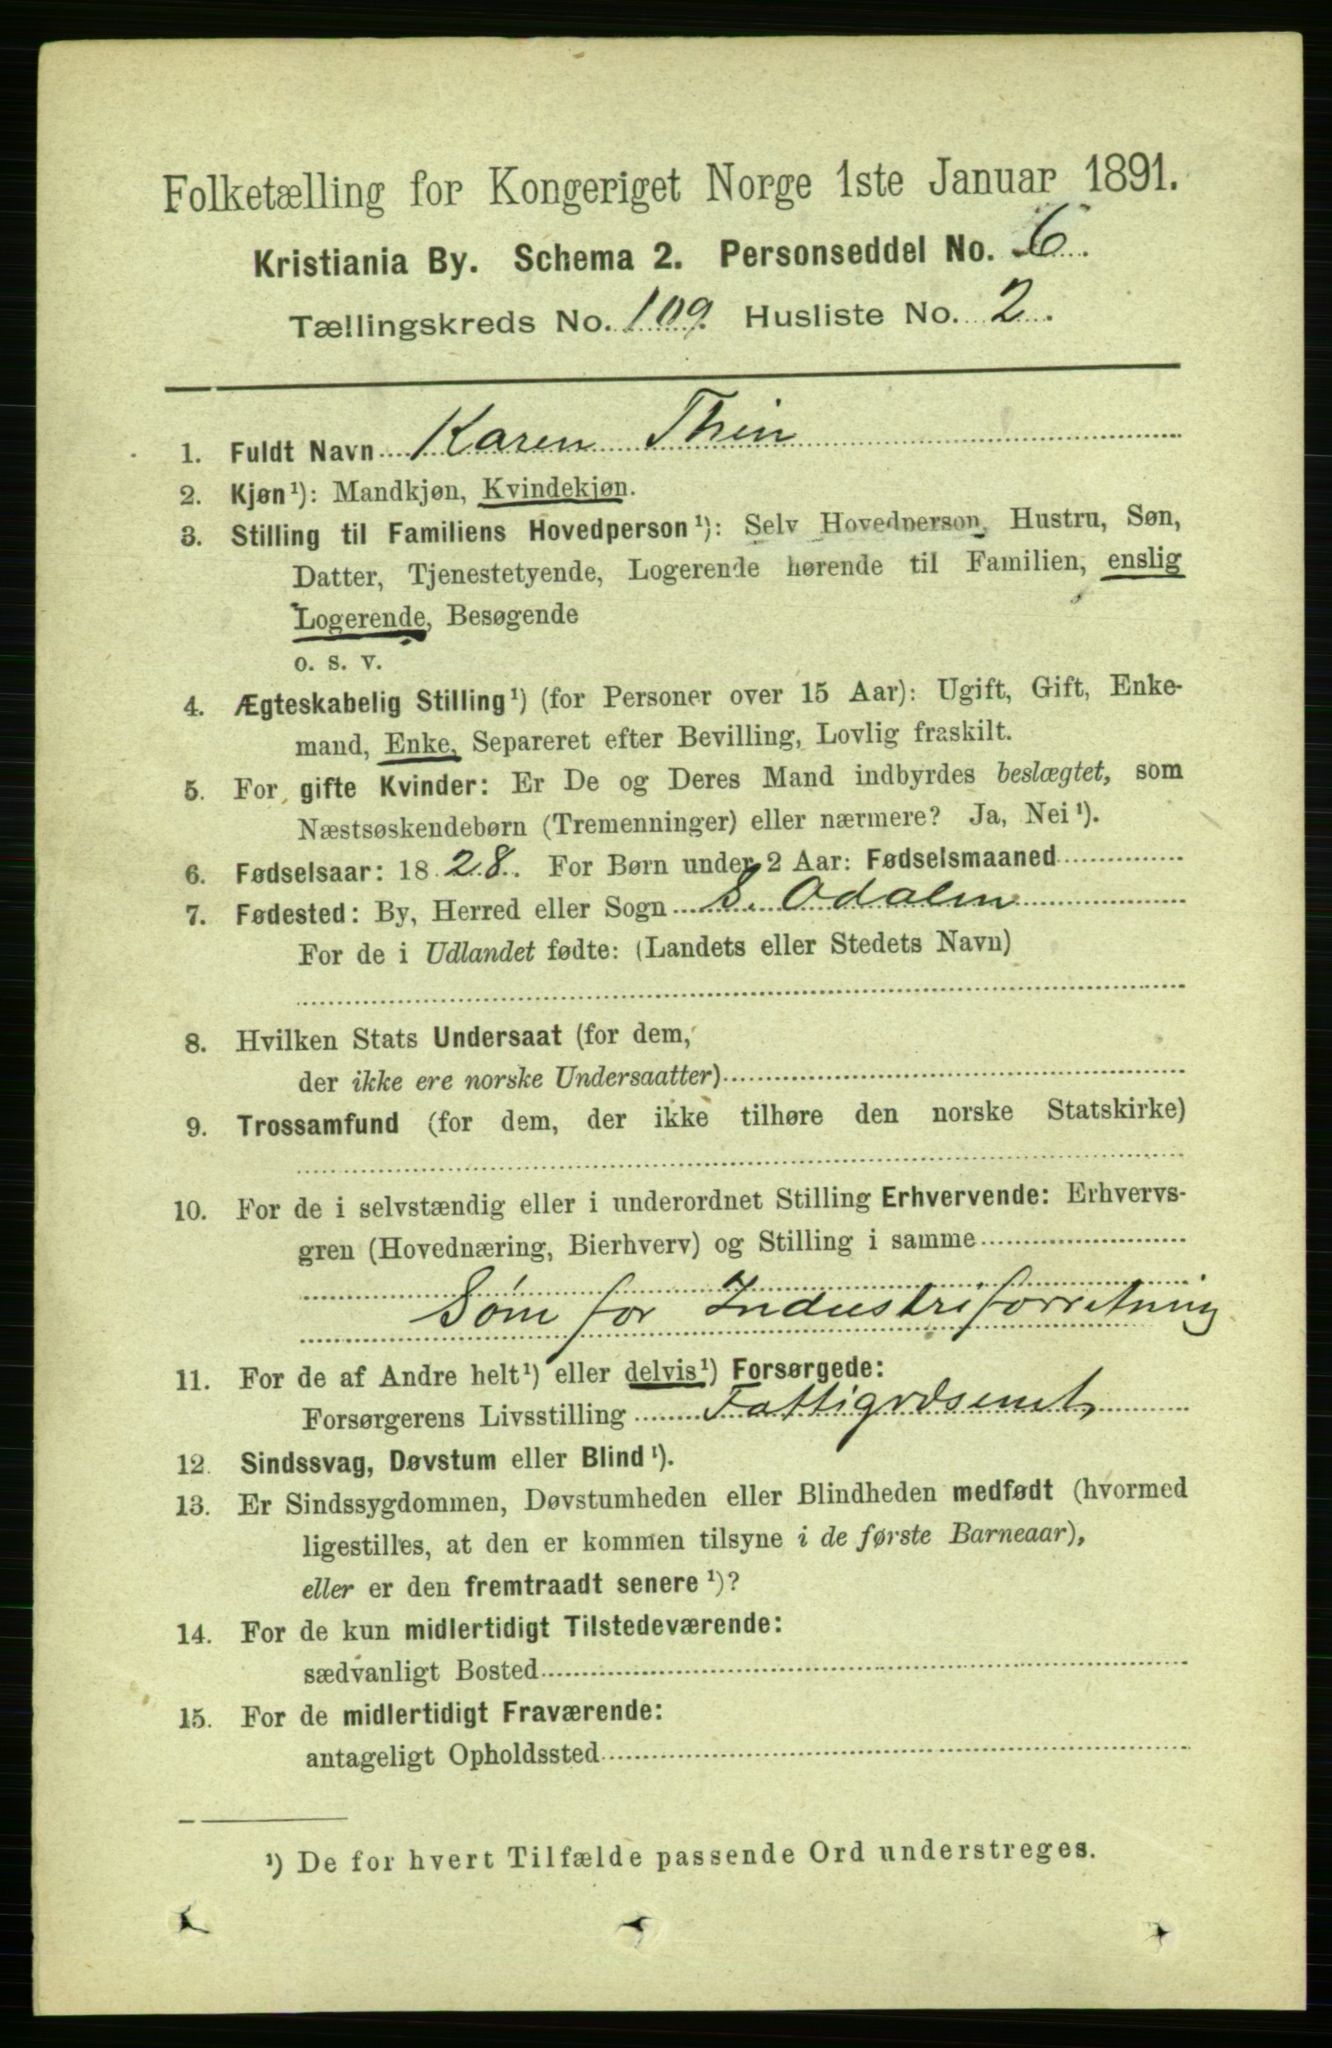 Folketælling for Kongeriget Norge 1ste Januar 1891.
Kristiania By. Schema 2. Personseddel No. 6.
Tællingskreds No. 109. Husliste No. 2.
1. Fuldt Navn Karen Thin
2. Kjøn¹): Mandkjøn, Kvindekjøn.
3. Stilling til Familiens Hovedperson¹): Selv Hovedperson, Hustru, Søn,
Datter, Tjenestetyende, Logerende hørende til Familien, enslig
Logerende, Besøgende
o. s. v.
4. Ægteskabelig Stilling¹) (for Personer over 15 Aar): Ugift, Gift, Enke-
mand, Enke, Separeret efter Bevilling, Lovlig fraskilt.
5. For gifte Kvinder: Er De og Deres Mand indbyrdes beslægtet, som
Næstsøskendebørn (Tremenninger) eller nærmere? Ja, Nei¹).
6. Fødselsaar: 1828. For Børn under 2 Aar: Fødselsmaaned
7. Fødested: By, Herred eller Sogn S. Odalen
For de i Udlandet fødte: (Landets eller Stedets Navn)
8. Hvilken Stats Undersaat (for dem,
der ikke ere norske Undersaatter)
9. Trossamfund (for dem, der ikke tilhøre den norske Statskirke)
10. For de i selvstændig eller i underordnet Stilling Erhvervende: Erhvervs-
gren (Hovednæring, Bierhverv) og Stilling i samme
Søm for Industriforretning
11. For de af Andre helt¹) eller delvis¹) Forsørgede:
Forsørgerens Livsstilling Fattigvæsenet
12. Sindssvag, Døvstum eller Blind¹).
13. Er Sindssygdommen, Døvstumheden eller Blindheden medfødt (hvormed
ligestilles, at den er kommen tilsyne i de første Barneaar),
eller er den fremtraadt senere¹)?
14. For de kun midlertidigt Tilstedeværende:
sædvanligt Bosted
15. For de midlertidigt Fraværende:
antageligt Opholdssted
¹) De for hvert Tilfælde passende Ord understreges.